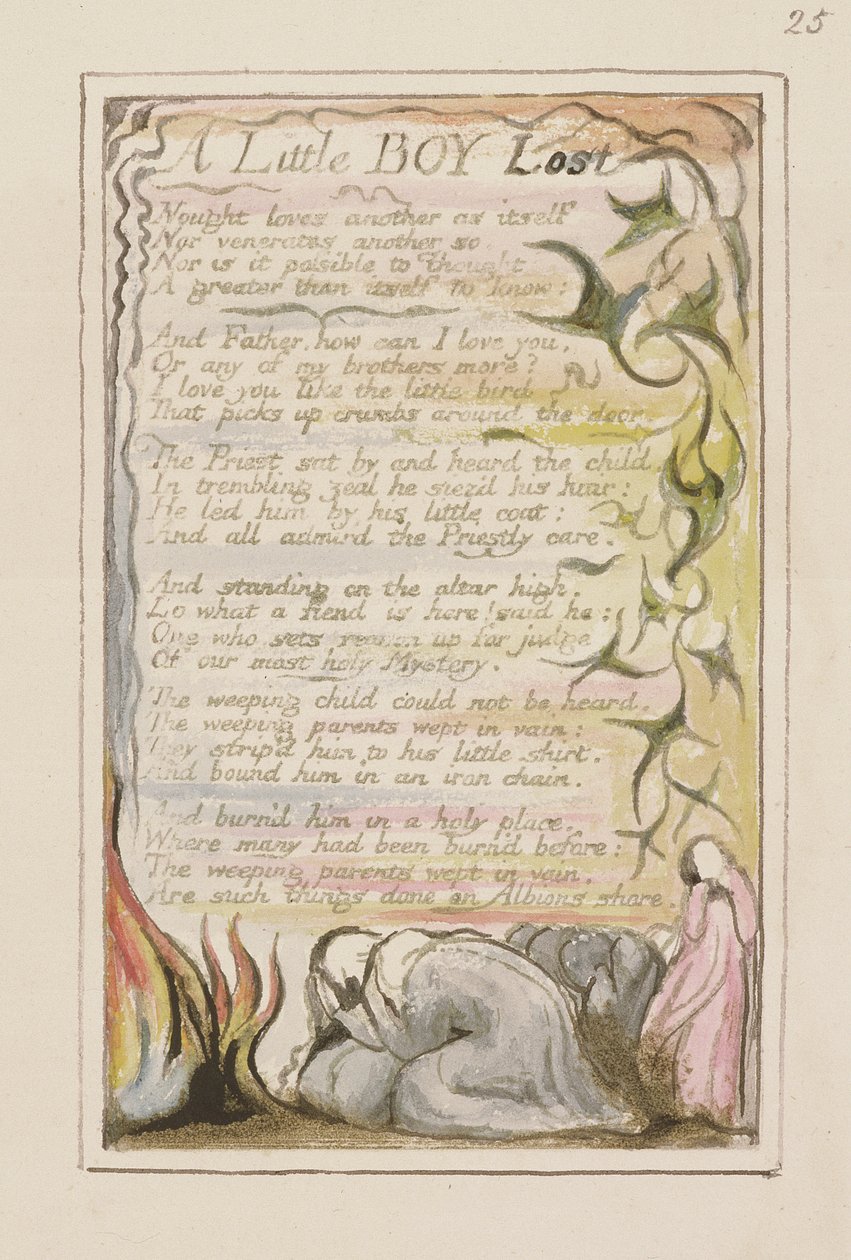 25
A Little BOY Lost
Nought loves another as itself
Nor venerates another so.
Nor is it possible to Thought
A greater than itself to know:
And Father, how can I love you,
Or any of my brothers more?
I love you like the little bird
That picks up crumbs around the door.
The Priest sat by and heard the child,
In trembling zeal he siez'd his hair:
He led him by his little coat:
And all admir'd the Priestly care.
And standing on the altar high,
Lo what a fiend is here! said he:
One who sets reason up for judge
Of our most holy Mystery.
The weeping child could not be heard.
The weeping parents wept in vain:
They strip'd him to his little shirt.
And bound him in an iron chain.
And burn'd him in a holy place,
Where many had been burn'd before:
The weeping parents wept in vain.
Are such things done on Albions shore.